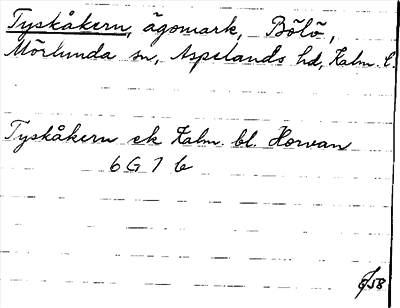 Tyskåkern, ägomark, Bölö,
Mörlunda sn, Aspelands hd, Kalm. l.
Tyskåkern ek Kalm. bl. Horvan
6 G 7 b
/58